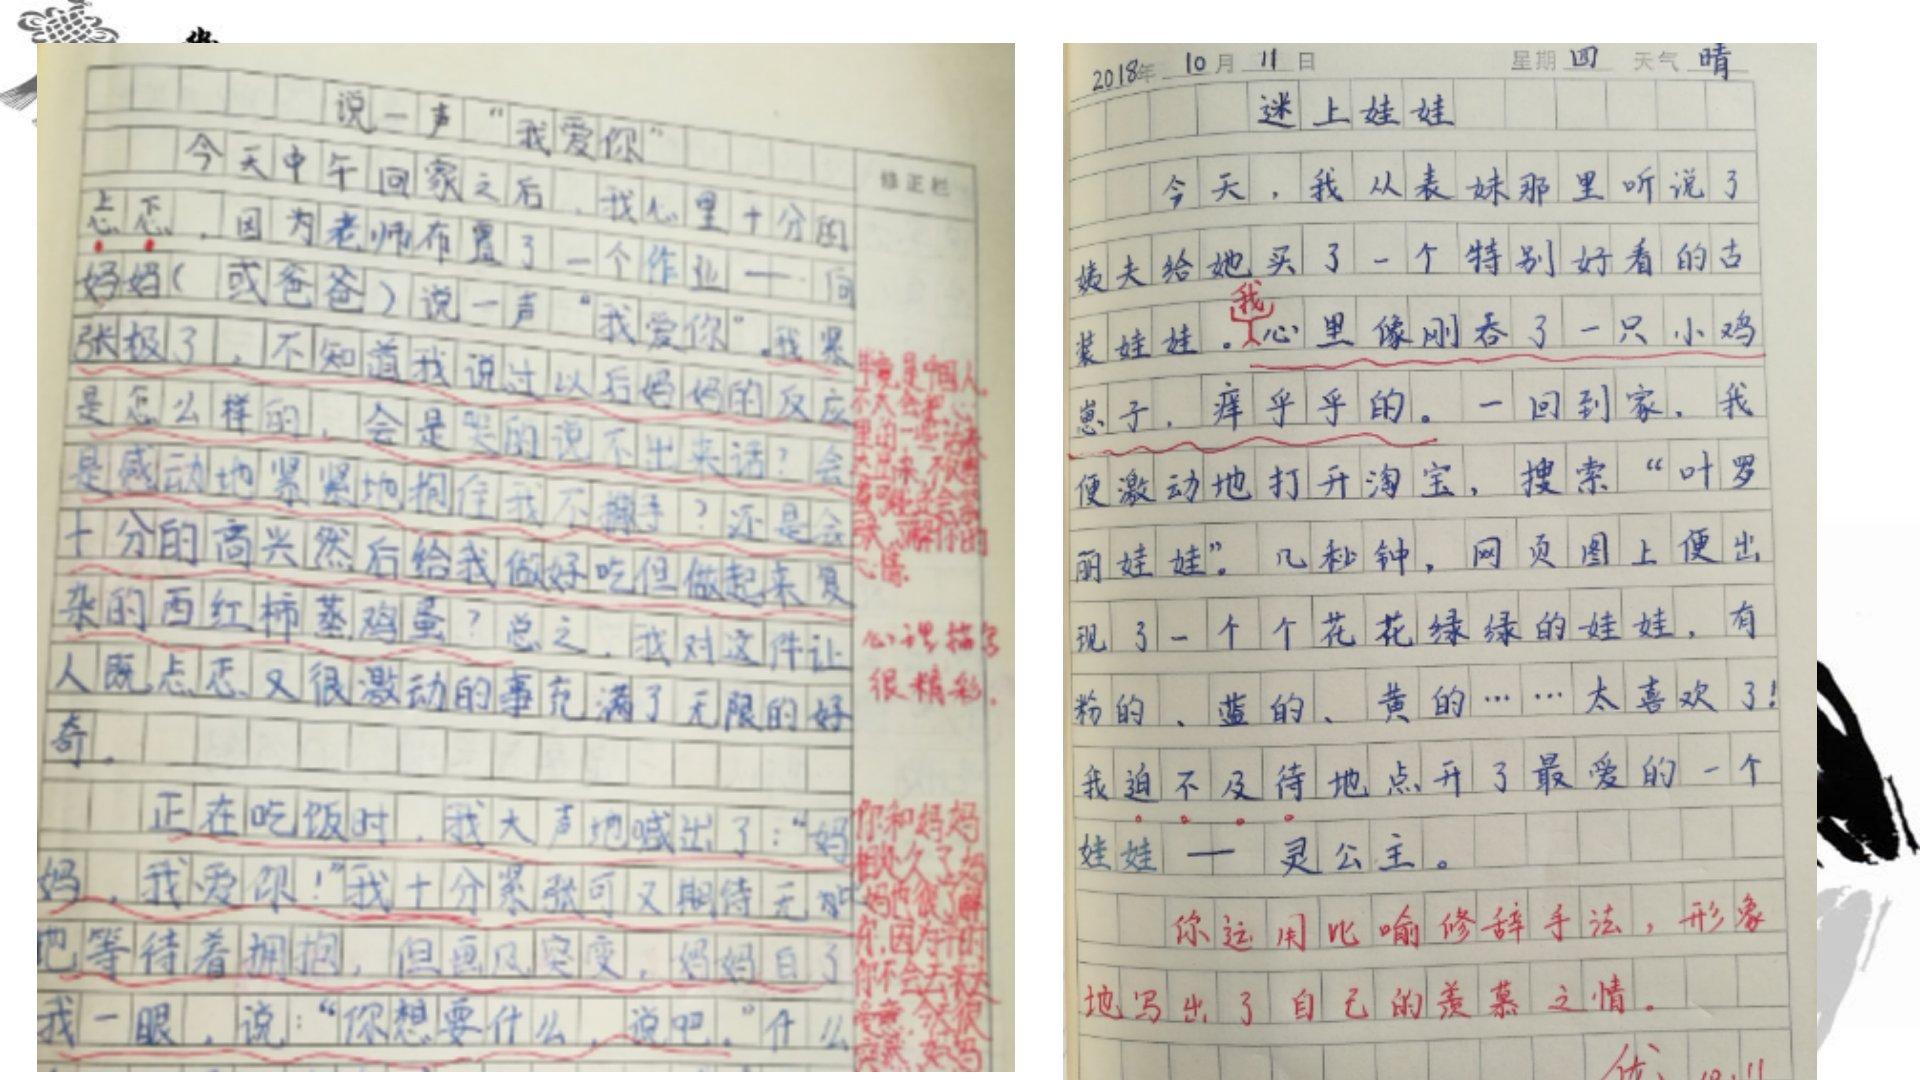 说一声“我爱你”
今天中午回家之后，我心里十分的
忐忑，因为老师布置了一个作业——向
妈妈(或爸爸)说一声“我爱你”。我紧
张极了，不知道我说过以后妈妈的反应
是怎么样的，会是哭的说不出来话？会
是感动地紧紧地抱住我不撒手？还是会
十分的高兴然后给我做好吃但做起来复
杂的西红柿蒸鸡蛋？总之，我对这件让
人既忐忑又很激动的事充满了无限的好
奇。
正在吃饭时，我大声地喊出了：“妈
妈，我爱你！”我十分紧张可又期待无比
地等待着拥抱，但画风突变，妈妈白了
我一眼，说：“你想要什么，说吧。”什么
修正栏
毕竟是中国人，
心理描写
很精彩.
你和妈妈
相处久了,妈
妈也很了解
你,因为平时
你不会去表达
2018年 10月 11日 星期四 天气 晴
迷上娃娃
今天，我从表妹那里听说了
姨夫给她买了一个特别好看的古
我
装娃娃。心里像刚吞了一只小鸡
崽子，痒乎乎的。一回到家，我
便激动地打开淘宝，搜索“叶罗
丽娃娃”。几秒钟，网页图上便出
现了一个个花花绿绿的娃娃，有
粉的、蓝的、黄的……太喜欢了！
我迫不及待地点开了最爱的一个
娃娃——灵公主。
你运用比喻修辞手法，形象
地写出了自己的羡慕之情。
优 10.11